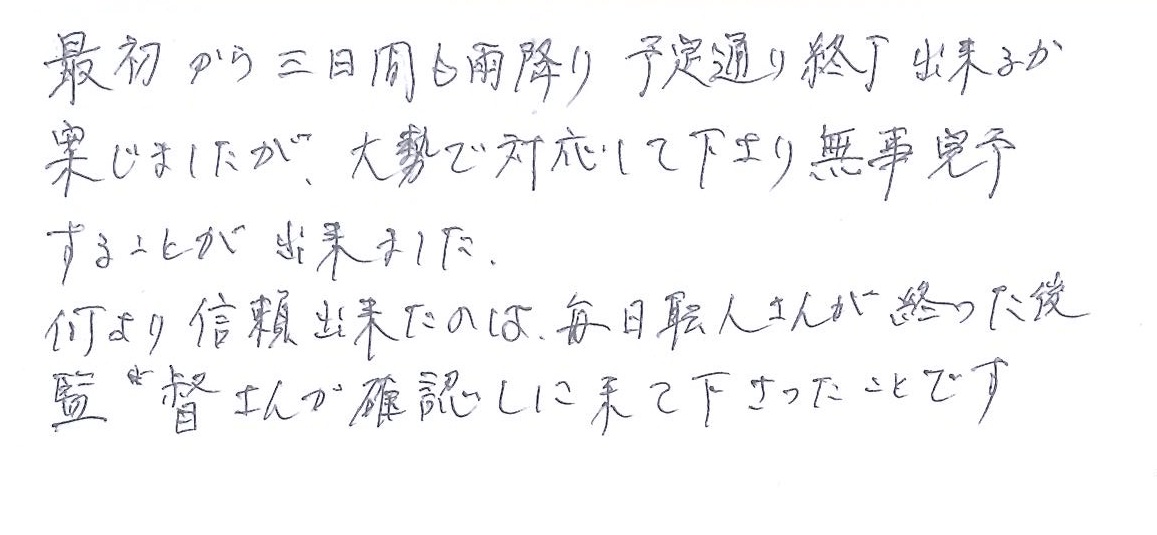 最初から三日間も雨降り予定通り終了出来るか
案じましたが、大勢で対応して下さり無事完了
することが出来ました.
何より信頼出来たのは、毎日職人さんが終った後
監督さんが確認しに来て下さったことです